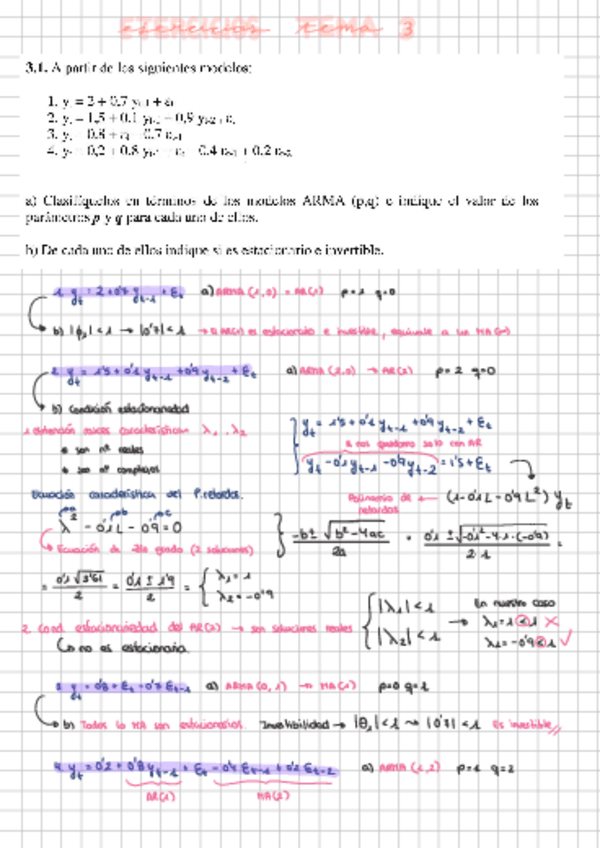 EJERCICIOS tema 3
3.1. A partir de los siguientes modelos:
1. yt = 2 + 0,7 yt-1 + εt
2. yt = 1,5 + 0,1 yt-1 + 0,9 yt-2 + εt
3. yt = 0,8 + εt - 0,7 εt-1
4. yt = 0,2 + 0,8 yt-1 + εt - 0,4 εt-1 + 0,2 εt-2
a) Clasifíquelos en términos de los modelos ARMA (p,q) e indique el valor de los
parámetros p y q para cada uno de ellos.
b) De cada uno de ellos indique si es estacionario e invertible.
1. yt = 2 + 0'7 yt-1 + εt a) ARMA (1,0) = AR(1) p=1 q=0
b) |ϕ1| < 1 → |0'7| < 1 → El AR(1) es estacionario e invertible, equivale a un MA(∞)
2. yt = 1'5 + 0'1 yt-1 + 0'9 yt-2 + εt a) ARMA (2,0) → AR(2) p=2 q=0
b) Condición estacionariedad
1. Obtención raíces características λ1, λ2
• son nº reales
• son nº complejos
yt = 1'5 + 0'1 yt-1 + 0'9 yt-2 + εt
nos quedamos solo con AR
yt - 0'1 yt-1 - 0'9 yt-2 = 1'5 + εt
Ecuación característica del P. retardos.
Polinomio de retardos ← (1 - 0'1 L - 0'9 L²) yt
λ² - 0'1 L - 0'9 = 0
Ecuación de 2do grado (2 soluciones)
-b ± √(b² - 4ac) / 2a = 0'1 ± √(-0'1² - 4·1·(-0'9)) / 2·1 =
= 0'1 √3'61 / 2 = 0'1 ± 1'9 / 2 = { λ1 = 1
λ2 = -0'9
2. Cond. estacionariedad del AR(2) → son soluciones reales { |λ1| < 1
|λ2| < 1
→ En nuestro caso
λ1 = 1 < 1 ✗
λ2 = -0'9 < 1 ✓
↳ no es estacionaria.
3. yt = 0'8 + εt - 0'7 εt-1 a) ARMA (0,1) → MA(1) p=0 q=1
b) Todos lo MA son estacionarios. Invertibilidad → |θ1| < 1 → |0'7| < 1 Es invertible //
4. yt = 0'2 + 0'8 yt-1 + εt - 0'4 εt-1 + 0'2 εt-2 a) ARMA (1,2) p=1 q=2
AR(1) MA(2)